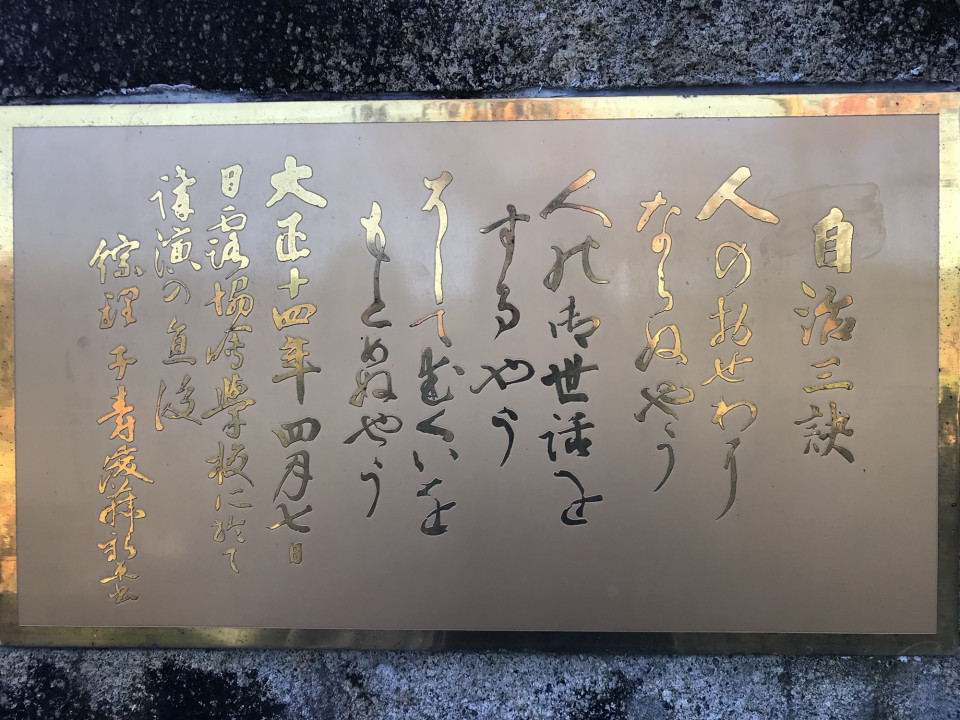 自治三訣
人のおせわに
ならぬやう
人の御世話を
するやう
そしてむくいを
もとめぬやう
大正十四年四月七日
日露協會學校に於て
講演の直後
綜理 子爵後藤新平書